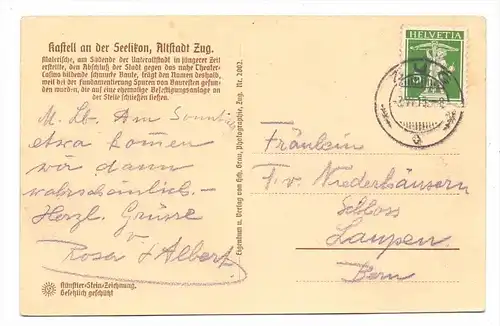 Kastell an der Seelikon, Altstadt Zug.
Malerische, am Südende der Unteraltstadt in jüngerer Zeit
erstellte, den Abschluß der Stadt gegen das nahe Theater-
Casino bildende schmucke Baute, trägt den Namen deshalb,
weil bei der Fundamentierung Spuren von Bauresten gefun-
den wurden, die auf eine ehemalige Befestigungsanlage an
der Stelle schließen ließen.
M. Lb. Am Sonntag
etwa kommen
wir dann
wahrscheinlich.-
Herzl. Grüsse
v
Rosa & Albert.
Künstler-Stein-Zeichnung.
Gesetzlich geschützt
Eigentum u. Verlag von Gebr. Grau, Photographie, Zug. Nr. 2092.
HELVETIA
5
Fräulein
F. v. Niederhäusern
Schloss
Laupen
Bern